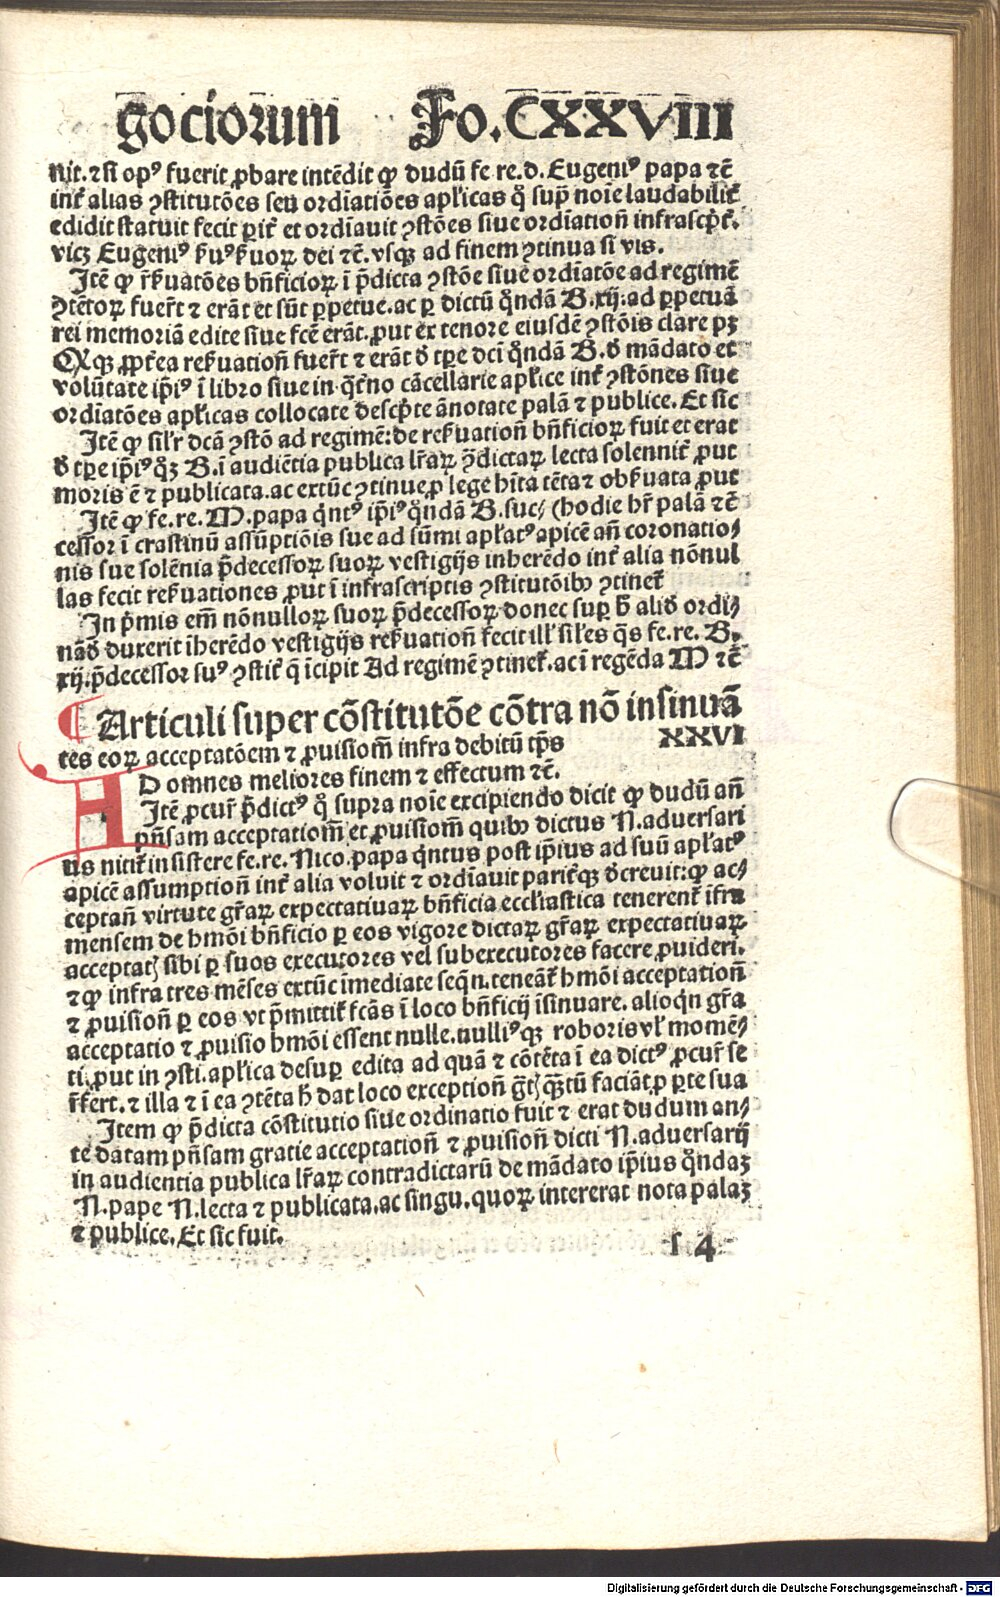 gociorum Fo. CXXVIII
nit. ⁊ si opꝰ fuerit ꝓbare intēdit ꝙ dudū fe. re. d. Eugeniꝰ papa ⁊c̄
int̄ alias ꝯstitutōes seu ordīatiōes apl'icas q̄ sup̄ noīe laudabilit̄
edidit statuit fecit ꝑit̄ et ordīauit ꝯstōes siue ordīation̄ infrascp̄t̄.
vicꝫ Eugeniꝰ ẜuꝰẜuoꝝ dei ⁊c̄. vsqꝫ ad finem ꝯtinua si vis.
Itē ꝙ r̄ẜuatōes bn̄ficioꝝ ī p̄dicta ꝯstōe siue ordīatōe ad regimē
ꝯtētoꝝ fuer̄t ⁊ erāt et sūt ꝑpetue. ac ꝑ dictū q̄ndā B. xij. ad ꝑpetuā
rei memoriā edite siue fcē erāt. ꝓut ex tenore eiusdē ꝯstōis clare pꝫ
Qꝙ ꝓpt̄ea reẜuation̄ fuer̄t ⁊ erāt d̄ tꝑe dc̄i q̄ndā B. d̄ mādato et
volūtate ip̄iꝰ ī libro siue in q̄t̄no cācellarie apl'ice int̄ ꝯstōnes siue
ordīatōes apl'icas collocate descp̄te ānotate palā ⁊ publice. Et sic
Itē ꝙ sil'r dcā ꝯstō ad regimē: de reẜuation̄ bn̄ficioꝝ fuit et erat
d̄ tꝑe ip̄iꝰ q̄ꝫ B. ī audiētia publica lr̄aꝝ ꝯ̄dictaꝝ lecta solennit̄ ꝓut
moris ē ⁊ publicata. ac extūc ꝯtinue ꝓ lege hīta tēta ⁊ obẜuata ꝓut
Itē ꝙ fe. re. M. papa q̄ntꝰ ip̄iꝰ q̄ndā B. suc⸗ (hodie hr̄ palā ⁊c̄
cessor ī crastinū assūptiōis sue ad sūmi apl'atꝰ apicē an̄ coronatio⸗
nis sue solēnia p̄decessoꝝ suoꝝ vestigijs inherēdo int̄ alia nōnul
las fecit reẜuationes ꝓut ī infrascriptis ꝯstitutōibꝫ ꝯtinet̄
In p̄mis em̄ nōnulloꝝ suoꝝ p̄decessoꝝ donec suꝑ h̄ alid̄ ordi⸗
nād̄ duxerit īherēdo vestigijs reẜuation̄ fecit ill' sil'es q̄s fe. re. B.
xij. p̄decessor suꝰ ꝯstit̄ q̄ īcipit Ad regimē ꝯtinet̄. ac ī regēda M ⁊c̄
¶ Articuli super cōstitutōe cōtra nō insinuā
tes eoꝝ acceptatōem ⁊ ꝓuisiom̄ infra debitū tp̄s XXVI
AD omnes meliores finem ⁊ effectum ⁊c̄.
Itē ꝓcur̄ p̄dictꝰ q̄ supra noīe excipiendo dicit ꝙ dudū an̄
pn̄sam acceptatiom̄ et ꝓuisiom̄ quibꝫ dictus N. aduersari
us nitit̄ insistere fe. re. Nico. papa q̄ntus post ip̄ius ad suū apl'atꝰ
apicē assumption̄ int̄ alia voluit ⁊ ordīauit parit̄qꝫ d̄creuit: ꝙ ac⸗
ceptan̄ virtute gr̄aꝝ expectatiuaꝝ bn̄ficia eccl'iastica tenerent̄ īfra
mensem de hmōi bn̄ficio ꝑ eos vigore dictaꝝ gr̄aꝝ expectatiuaꝝ
acceptat̄ sibi ꝑ suos executores vel subexecutores facere ꝓuideri.
⁊ ꝙ infra tres mēses extūc īmediate seqn̄. teneāt̄ hmōi acceptation̄
⁊ ꝓuision̄ ꝑ eos vt p̄mittit̄ fcās ī loco bn̄ficij īsinuare. alioq̄n gr̄a
acceptatio ⁊ ꝓuisio hmōi essent nulle. nulliꝰqꝫ roboris vl' momē⸗
ti. ꝓut in ꝯsti. apl'ica desuꝑ edita ad quā ⁊ cōtēta ī ea dictꝰ ꝓcur̄ se
r̄fert. ⁊ illa ⁊ ī ea ꝯtēta h̄ dat loco exception̄ q̄tꝫ faciāt ꝓ ꝑte sua
Item ꝙ p̄dicta cōstitutio siue ordinatio fuit ⁊ erat dudum an⸗
te datam pn̄sam gratie acceptation̄ ⁊ ꝓuision̄ dicti N. aduersarij
in audientia publica lr̄aꝝ contradictarū de mādato ip̄ius q̄ndaꝫ
N. pape N. lecta ⁊ publicata. ac singu. quoꝝ intererat nota palaꝫ
⁊ publice. Et sic fuit.
s 4
Digitalisierung gefördert durch die Deutsche Forschungsgemeinschaft - DFG